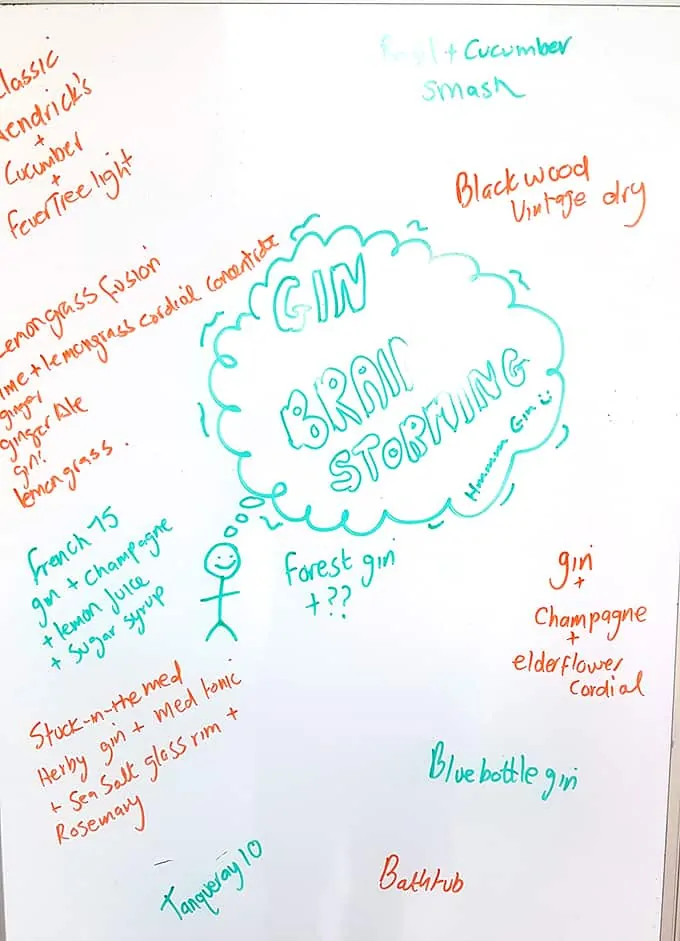 + Cucumber
Smash
Classic
Hendrick's
+
Cucumber
+
FeverTree light
Blackwood
Vintage dry
Lemongrass fusion
lime + lemongrass cordial concentrate
ginger
ginger Ale
gin!
lemongrass.
GIN
BRAI
STORMING
Hmmmm Gin
French 75
gin + Champagne
+ lemon Juice
+ Sugar Syrup
Forest gin
+ ??
gin
+
Champagne
+
elderflower
Cordial
Stuck-in-the med
Herby gin + Med tonic
+ Sea Salt glass rim +
Rosemary
Bluebottle gin
Tanqueray 10
Bathtub